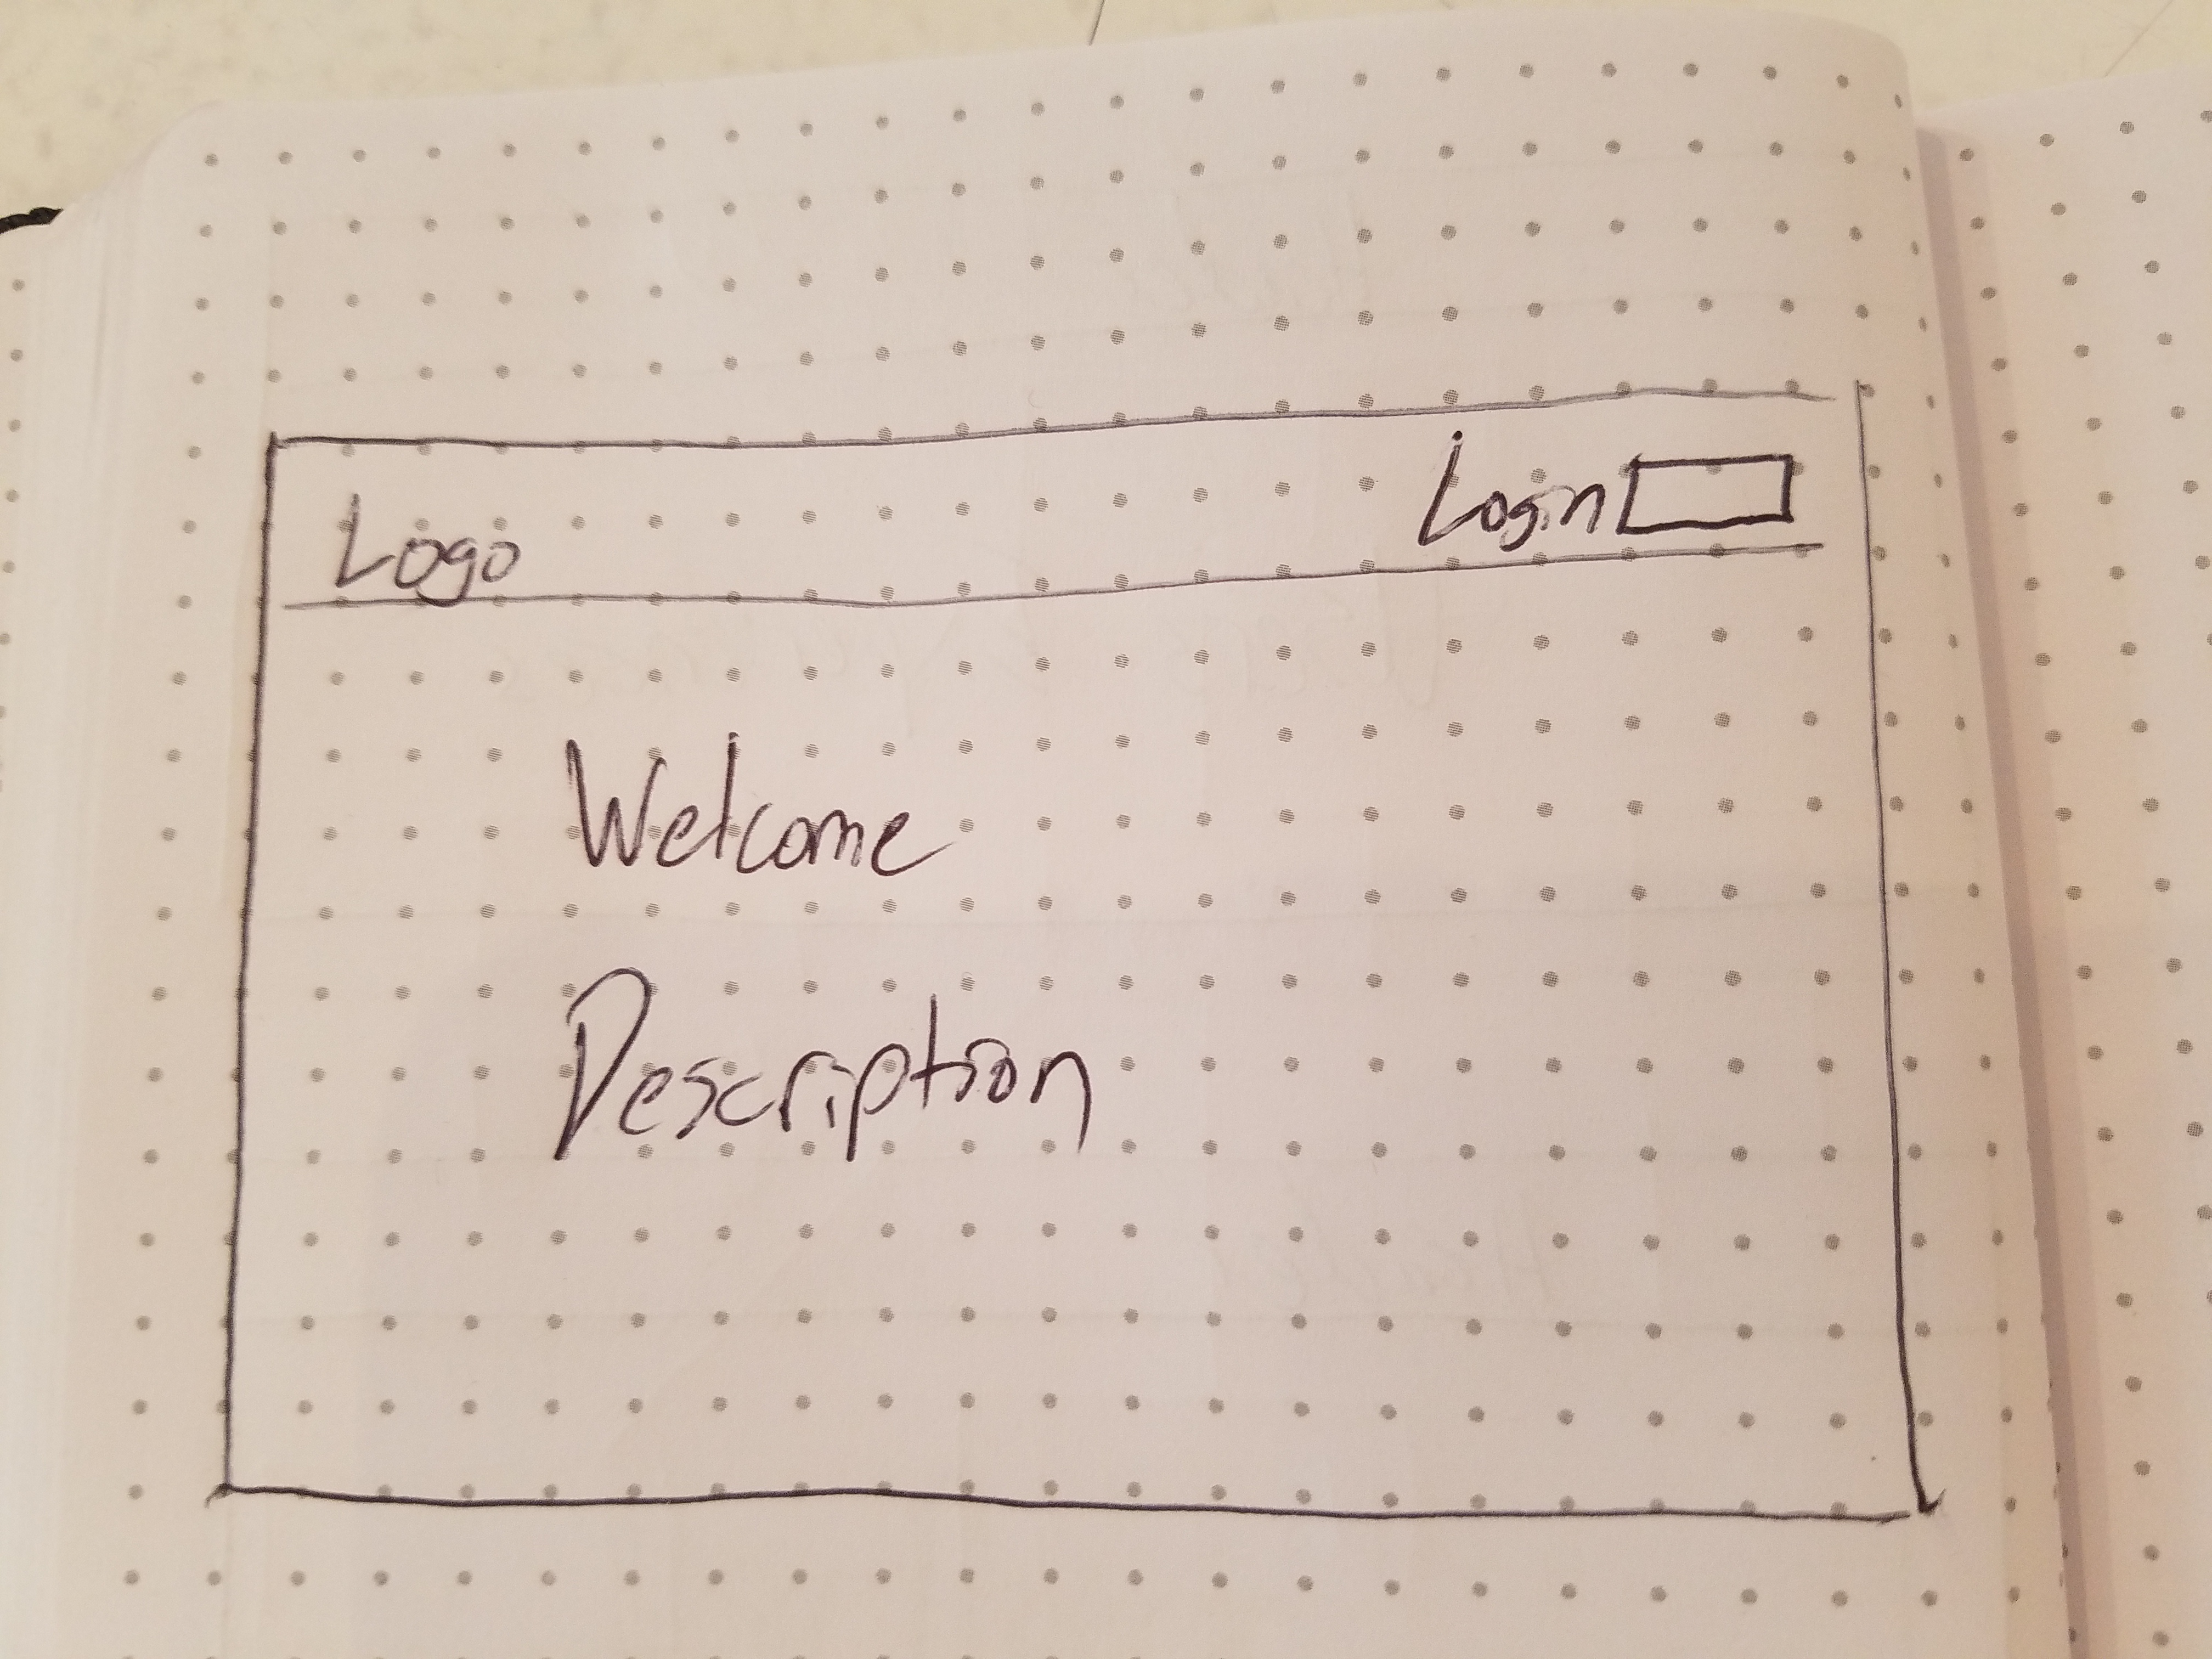 Logo
Login
Welcome
Description